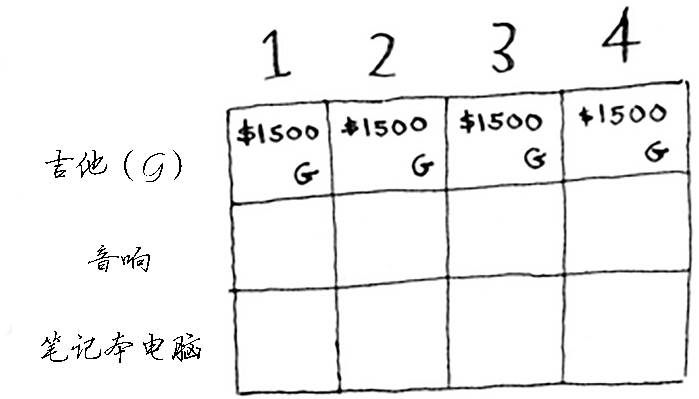 1 2 3 4
吉他(G) $1500 G $1500 G $1500 G $1500 G
音响
笔记本电脑